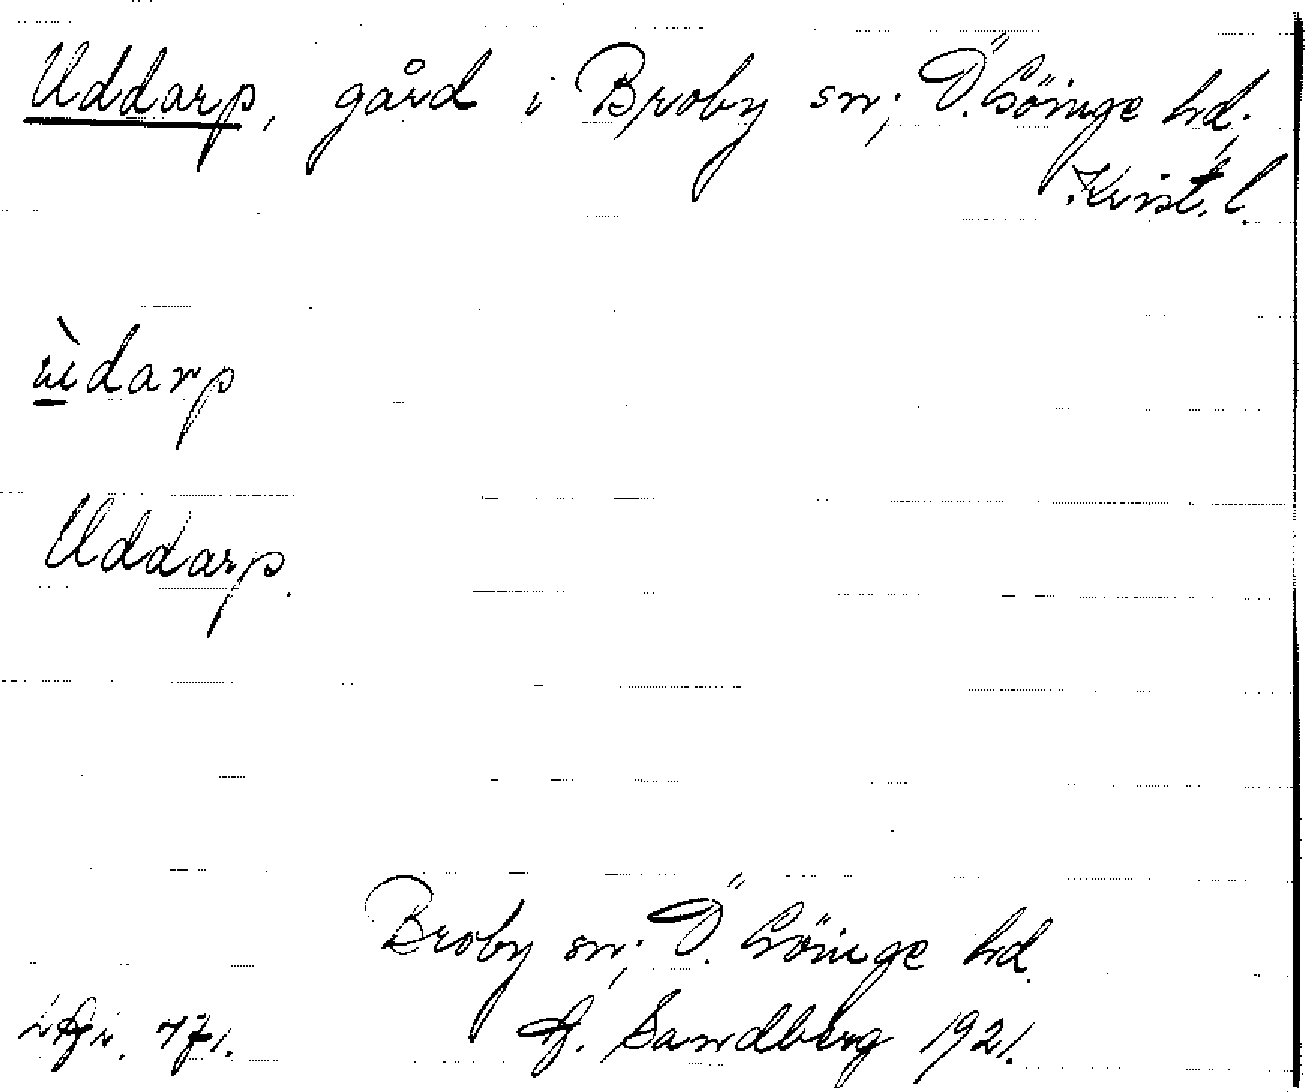 Uddarp, gård i Broby sn; Ö. Göinge hd;
Krist. l.
ùdarp
Uddarp.
Broby sn; Ö. Göinge hd.
Sandberg 1921.